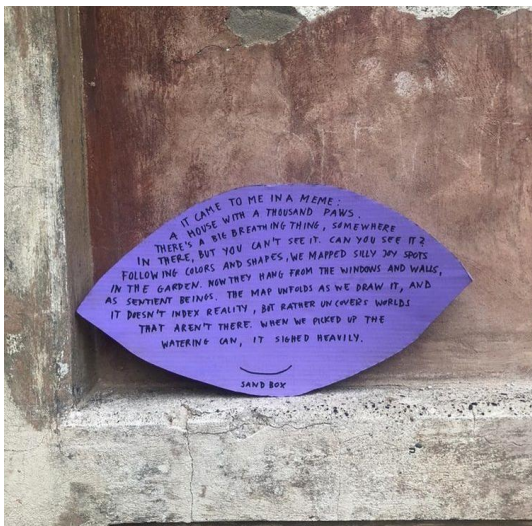 IT CAME TO ME IN A MEME:
A HOUSE WITH A THOUSAND PAWS.
THERE'S A BIG BREATHING THING, SOMEWHERE
IN THERE, BUT YOU CAN'T SEE IT. CAN YOU SEE IT?
FOLLOWING COLORS AND SHAPES, WE MAPPED SILLY JOY SPOTS
IN THE GARDEN. NOW THEY HANG FROM THE WINDOWS AND WALLS,
AS SENTIENT BEINGS. THE MAP UNFOLDS AS WE DRAW IT, AND
IT DOESN'T INDEX REALITY, BUT RATHER UNCOVERS WORLDS
THAT AREN'T THERE. WHEN WE PICKED UP THE
WATERING CAN, IT SIGHED HEAVILY.
SAND BOX